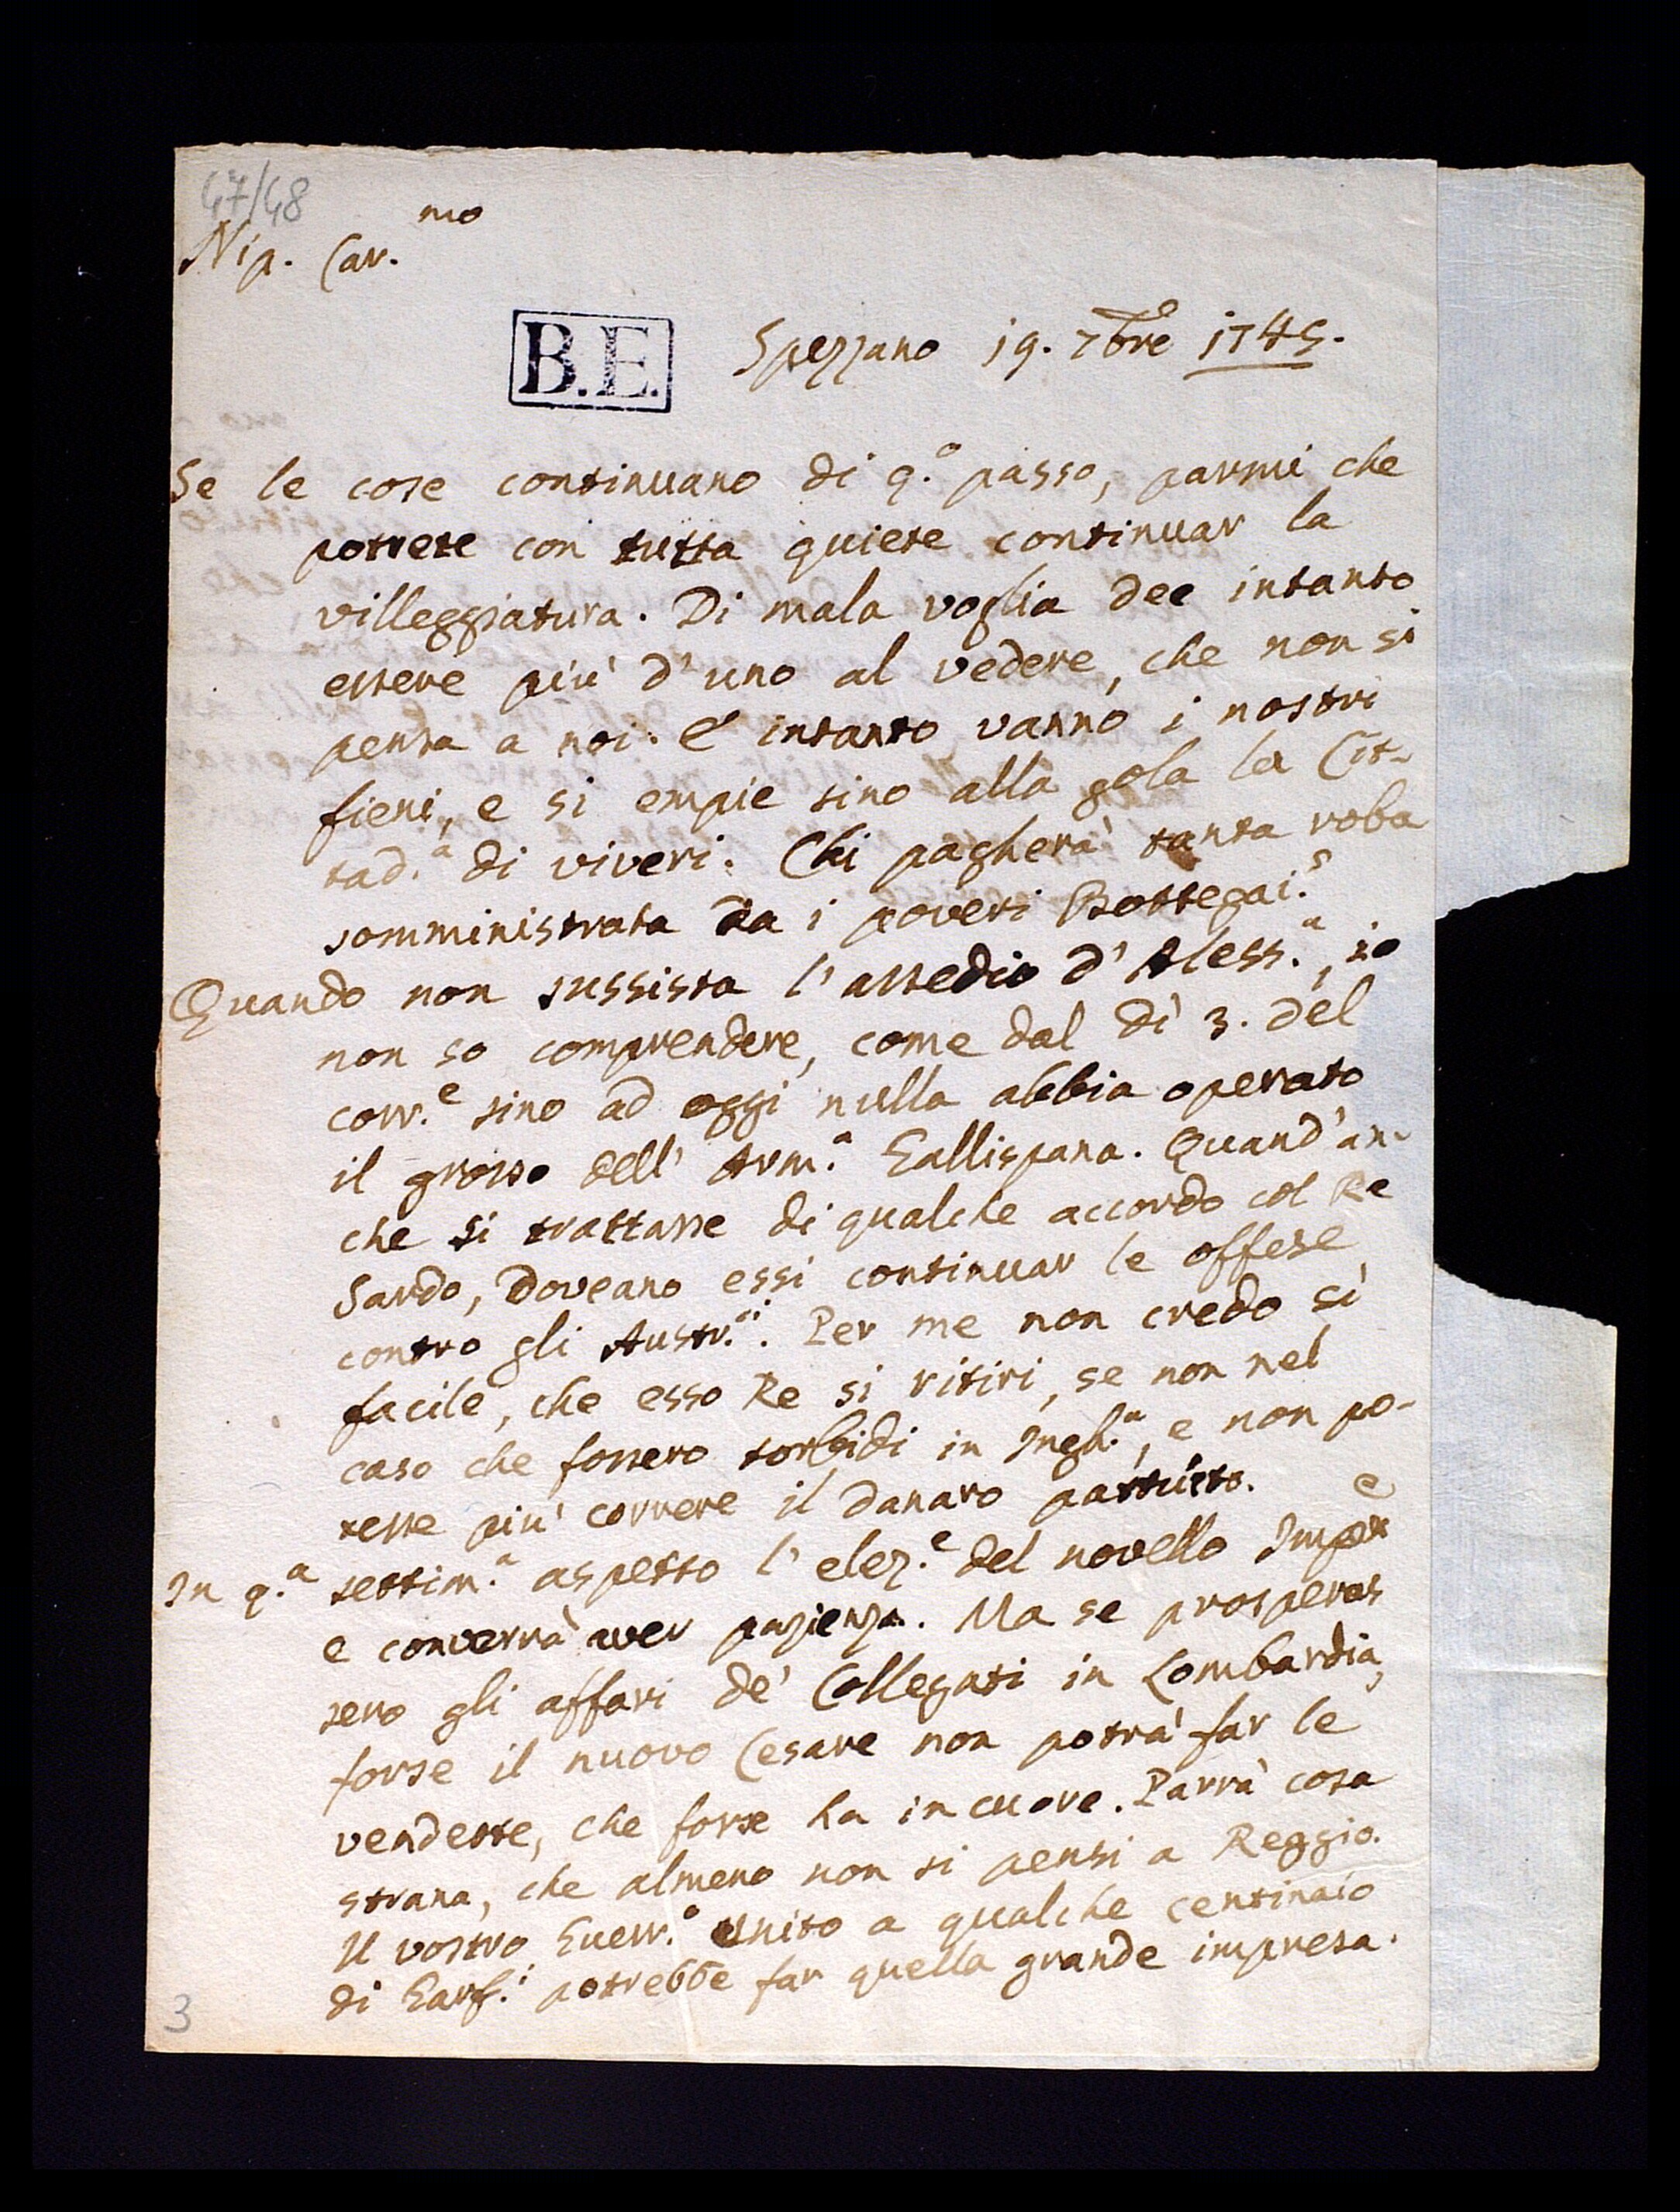 47/48
Nip. Car.mo
B.E.
Spezzano 19. 7bre 1745.
Se le cose continuano di q.o passo, parmi che
potrete con tutta quiete continuar la
villeggiatura. Di mala voglia dee intanto
essere più d'uno al vedere, che non si
pensa a noi. E intanto vanno i nostri
fieni, e si empie sino alla gola la Cit-
tad.a di viveri. Chi pagherà tanta roba
somministrata da i poveri Bottegai?
Quando non sussista l'assedio d'Aless.a, io
non so comprendere, come dal dì 3. del
corr.e sino ad oggi nulla abbia operato
il grosso dell' Arm.a Gallispana. Quand'an-
che si trattasse di qualche accordo col Re
Sardo, doveano essi continuar le offese
contro gli Austr.ci. Per me non credo sì
facile, che esso Re si ritiri, se non nel
caso che fossero torbidi in Ingh.a, e non po-
tesse più correre il danaro pattuito.
In q.a settim.a aspetto l'elez.e del novello Imper.e
e converrà aver pazienza. Ma se prosperas
sero gli affari de' Collegati in Lombardia,
forse il nuovo Cesare non potrà far le
vendette, che forse ha in cuore. Parrà cosa
strana, che almeno non si pensi a Reggio.
Il vostro Guerr.o unito a qualche centinaio
di Garf.i potrebbe far quella grande impresa.
3